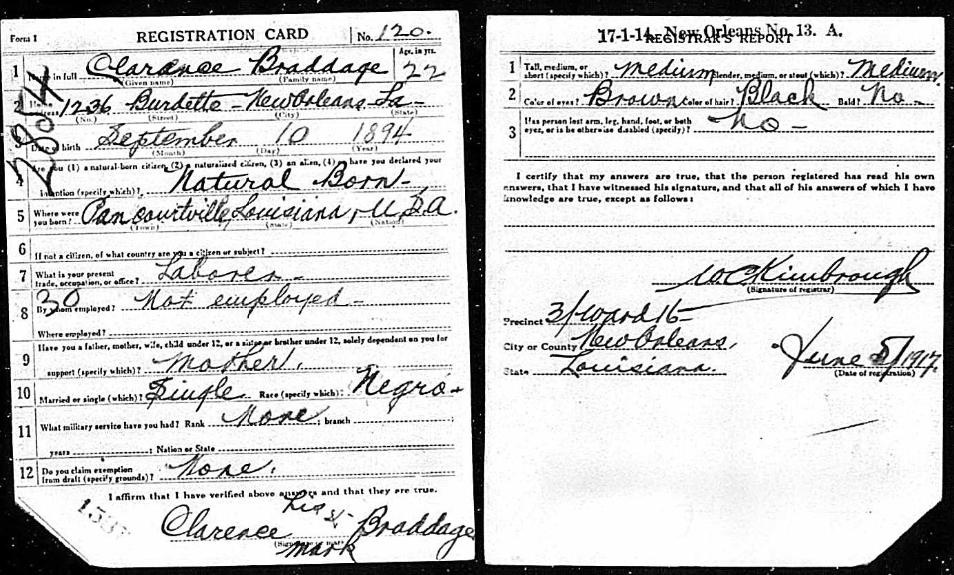 Form 1 REGISTRATION CARD No. 120.
1 Name in full Clarance Braddage Age, in yrs. 22
(Given name) (Family name)
2854
2 Home address 1236 Burdette - New Orleans - La -
(No.) (Street) (City) (State)
3 Date of birth September 10 1894
(Month) (Day) (Year)
4 Are you (1) a natural-born citizen, (2) a naturalized citizen, (3) an alien, (4) or have you declared your
intention (specify which)? Natural Born -
5 Where were you born? Pancourtville, Louisiana, - U.S.A.
(Town) (State) (Nation)
6 If not a citizen, of what country are you a citizen or subject?
7 What is your present trade, occupation, or office? Laborer -
30
8 By whom employed? Not employed -
Where employed?
9 Have you a father, mother, wife, child under 12, or a sister or brother under 12, solely dependent on you for
support (specify which)? Mother.
10 Married or single (which)? Single Race (specify which)? Negro -
11 What military service have you had? Rank None ; branch
years ; Nation or State
12 Do you claim exemption from draft (specify grounds)? None.
I affirm that I have verified above answers and that they are true.
his
Clarence x Braddage
mark
17-1-14. New Orleans No. 13. A.
REGISTRAR'S REPORT
1 Tall, medium, or short (specify which)? Medium Slender, medium, or stout (which)? Medium
2 Color of eyes? Brown Color of hair? Black Bald? No -
3 Has person lost arm, leg, hand, foot, or both eyes, or is he otherwise disabled (specify)? No -
I certify that my answers are true, that the person registered has read his own
answers, that I have witnessed his signature, and that all of his answers of which I have
knowledge are true, except as follows:
W C Kimbrough
(Signature of registrar)
Precinct 3/Ward 16 -
City or County New Orleans,
State Louisiana.
June 5/1917.
(Date of registration)